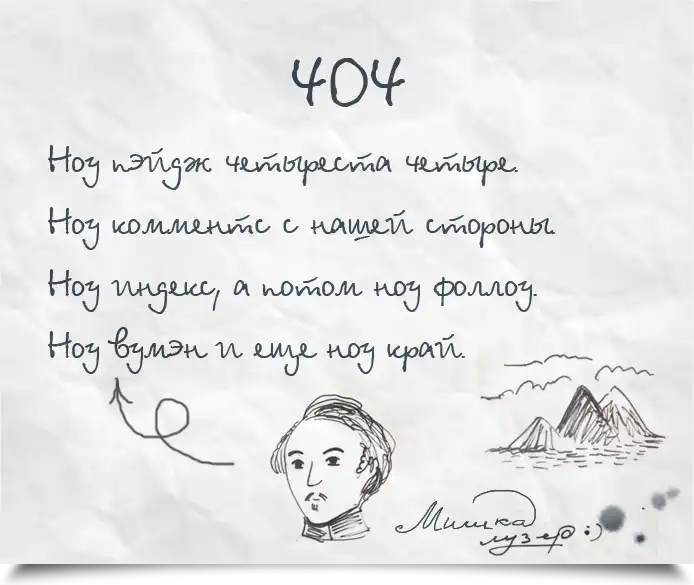 404
Ноу пэйдж четыреста четыре.
Ноу комментс с нашей стороны.
Ноу индекс, а потом ноу фоллоу.
Ноу вумэн и еще ноу край.
Мишка
лузер :)